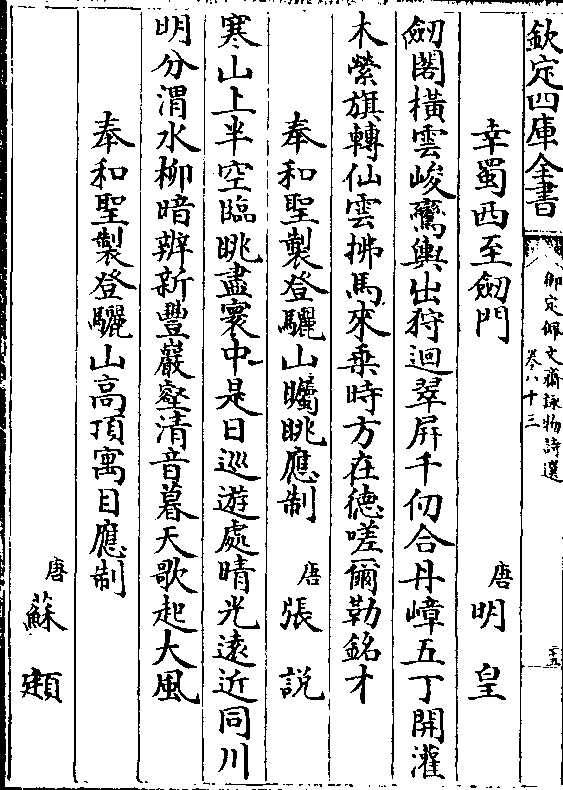 欽定四庫全書
御定佩文齋詠物詩選
卷八十三
二五
幸蜀西至劒門
唐 明 皇
劒閣橫雲峻鸞輿出狩迴翠屏千仞合丹嶂五丁開灌
木縈旗轉仙雲拂馬來乗時方在德嗟爾勒銘才
奉和聖製登驪山矚眺應制 唐 張 説
寒山上半空臨眺盡寰中是日巡遊處晴光遠近同川
明分渭水柳暗辨新豐巖壑清音暮天歌起大風
奉和聖製登驪山高頂寓目應制
唐 蘇 頲